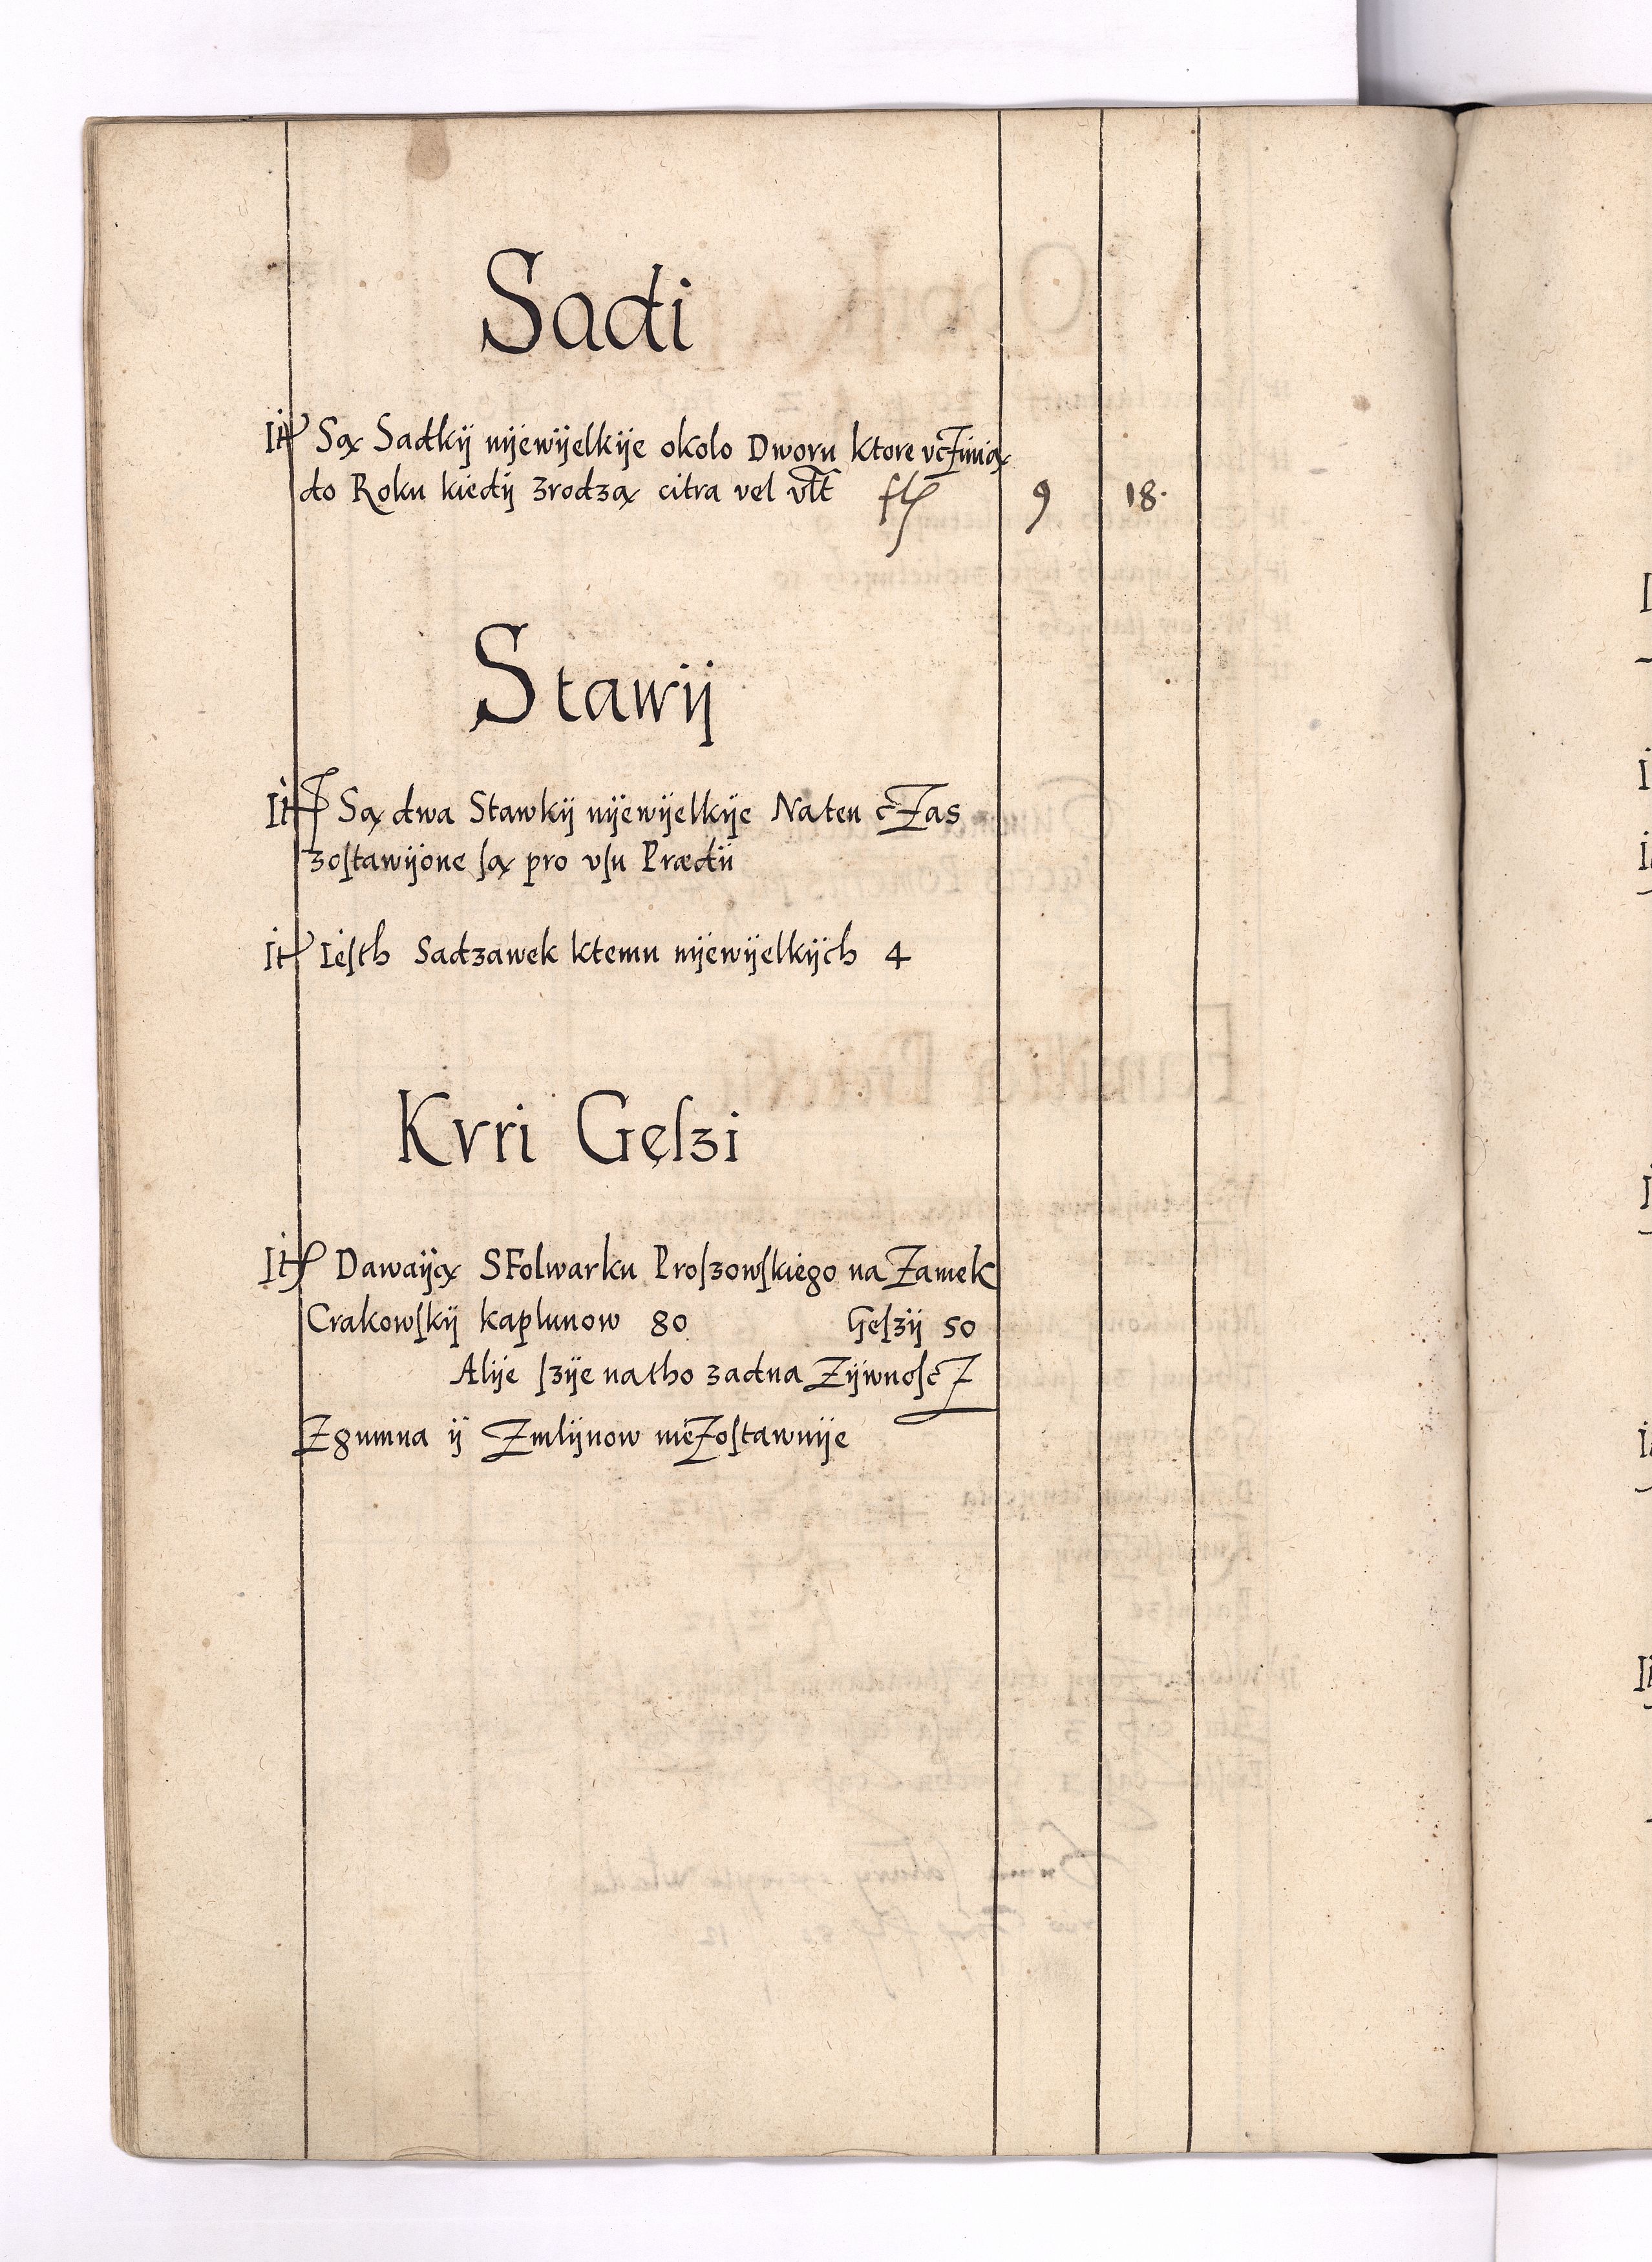 Sadi
It Są Sadkij nijewijelkije okolo Dworu ktore vcżinią
do Roku kiedij zrodzą citra vel vlt fl 9 18.
Stawij
It Są dwa Stawkij nijewijelkije Naten cżas
zoſtawijone ſą pro vſu Prædii
It Ieſth Sadzawek ktemu nijewijelkijch 4
Kvri Gęſzi
It Dawaiją SFolwarku Proſzowſkiego na Zamek
Crakowſkij kaplunow 80 Geſzij 50
Alije ſzije natho zadna Zijwnoſcz
Zgumna ij Zmlijnow nieZoſtawnije